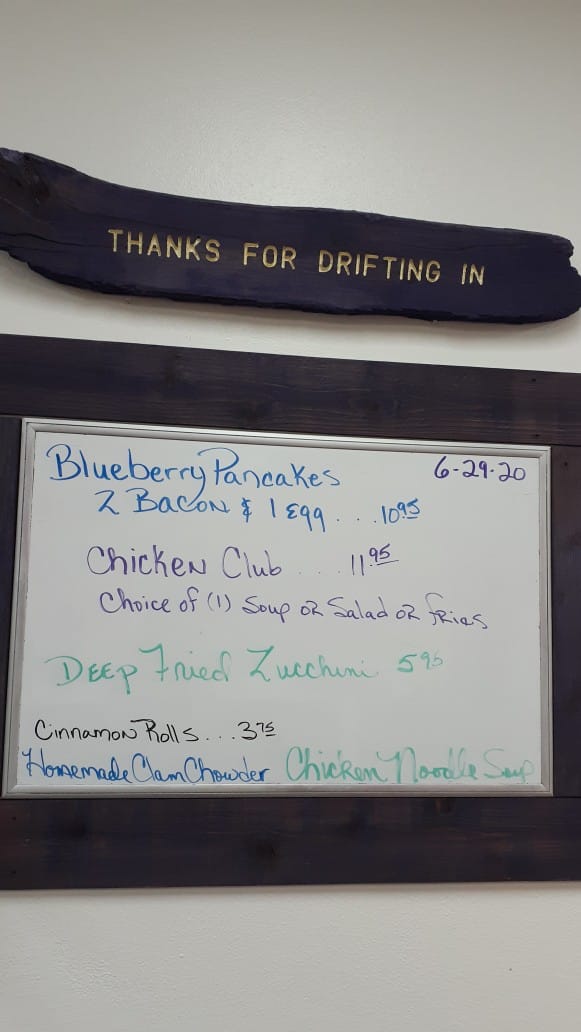 THANKS FOR DRIFTING IN
6-29-20
Blueberry Pancakes
2 Bacon & 1 Egg . . . 10.95
Chicken Club . . . 11.95
Choice of (1) Soup or Salad or fries
Deep Fried Zucchini 5.95
Cinnamon Rolls . . . 3.75
Homemade Clam Chowder Chicken Noodle Soup